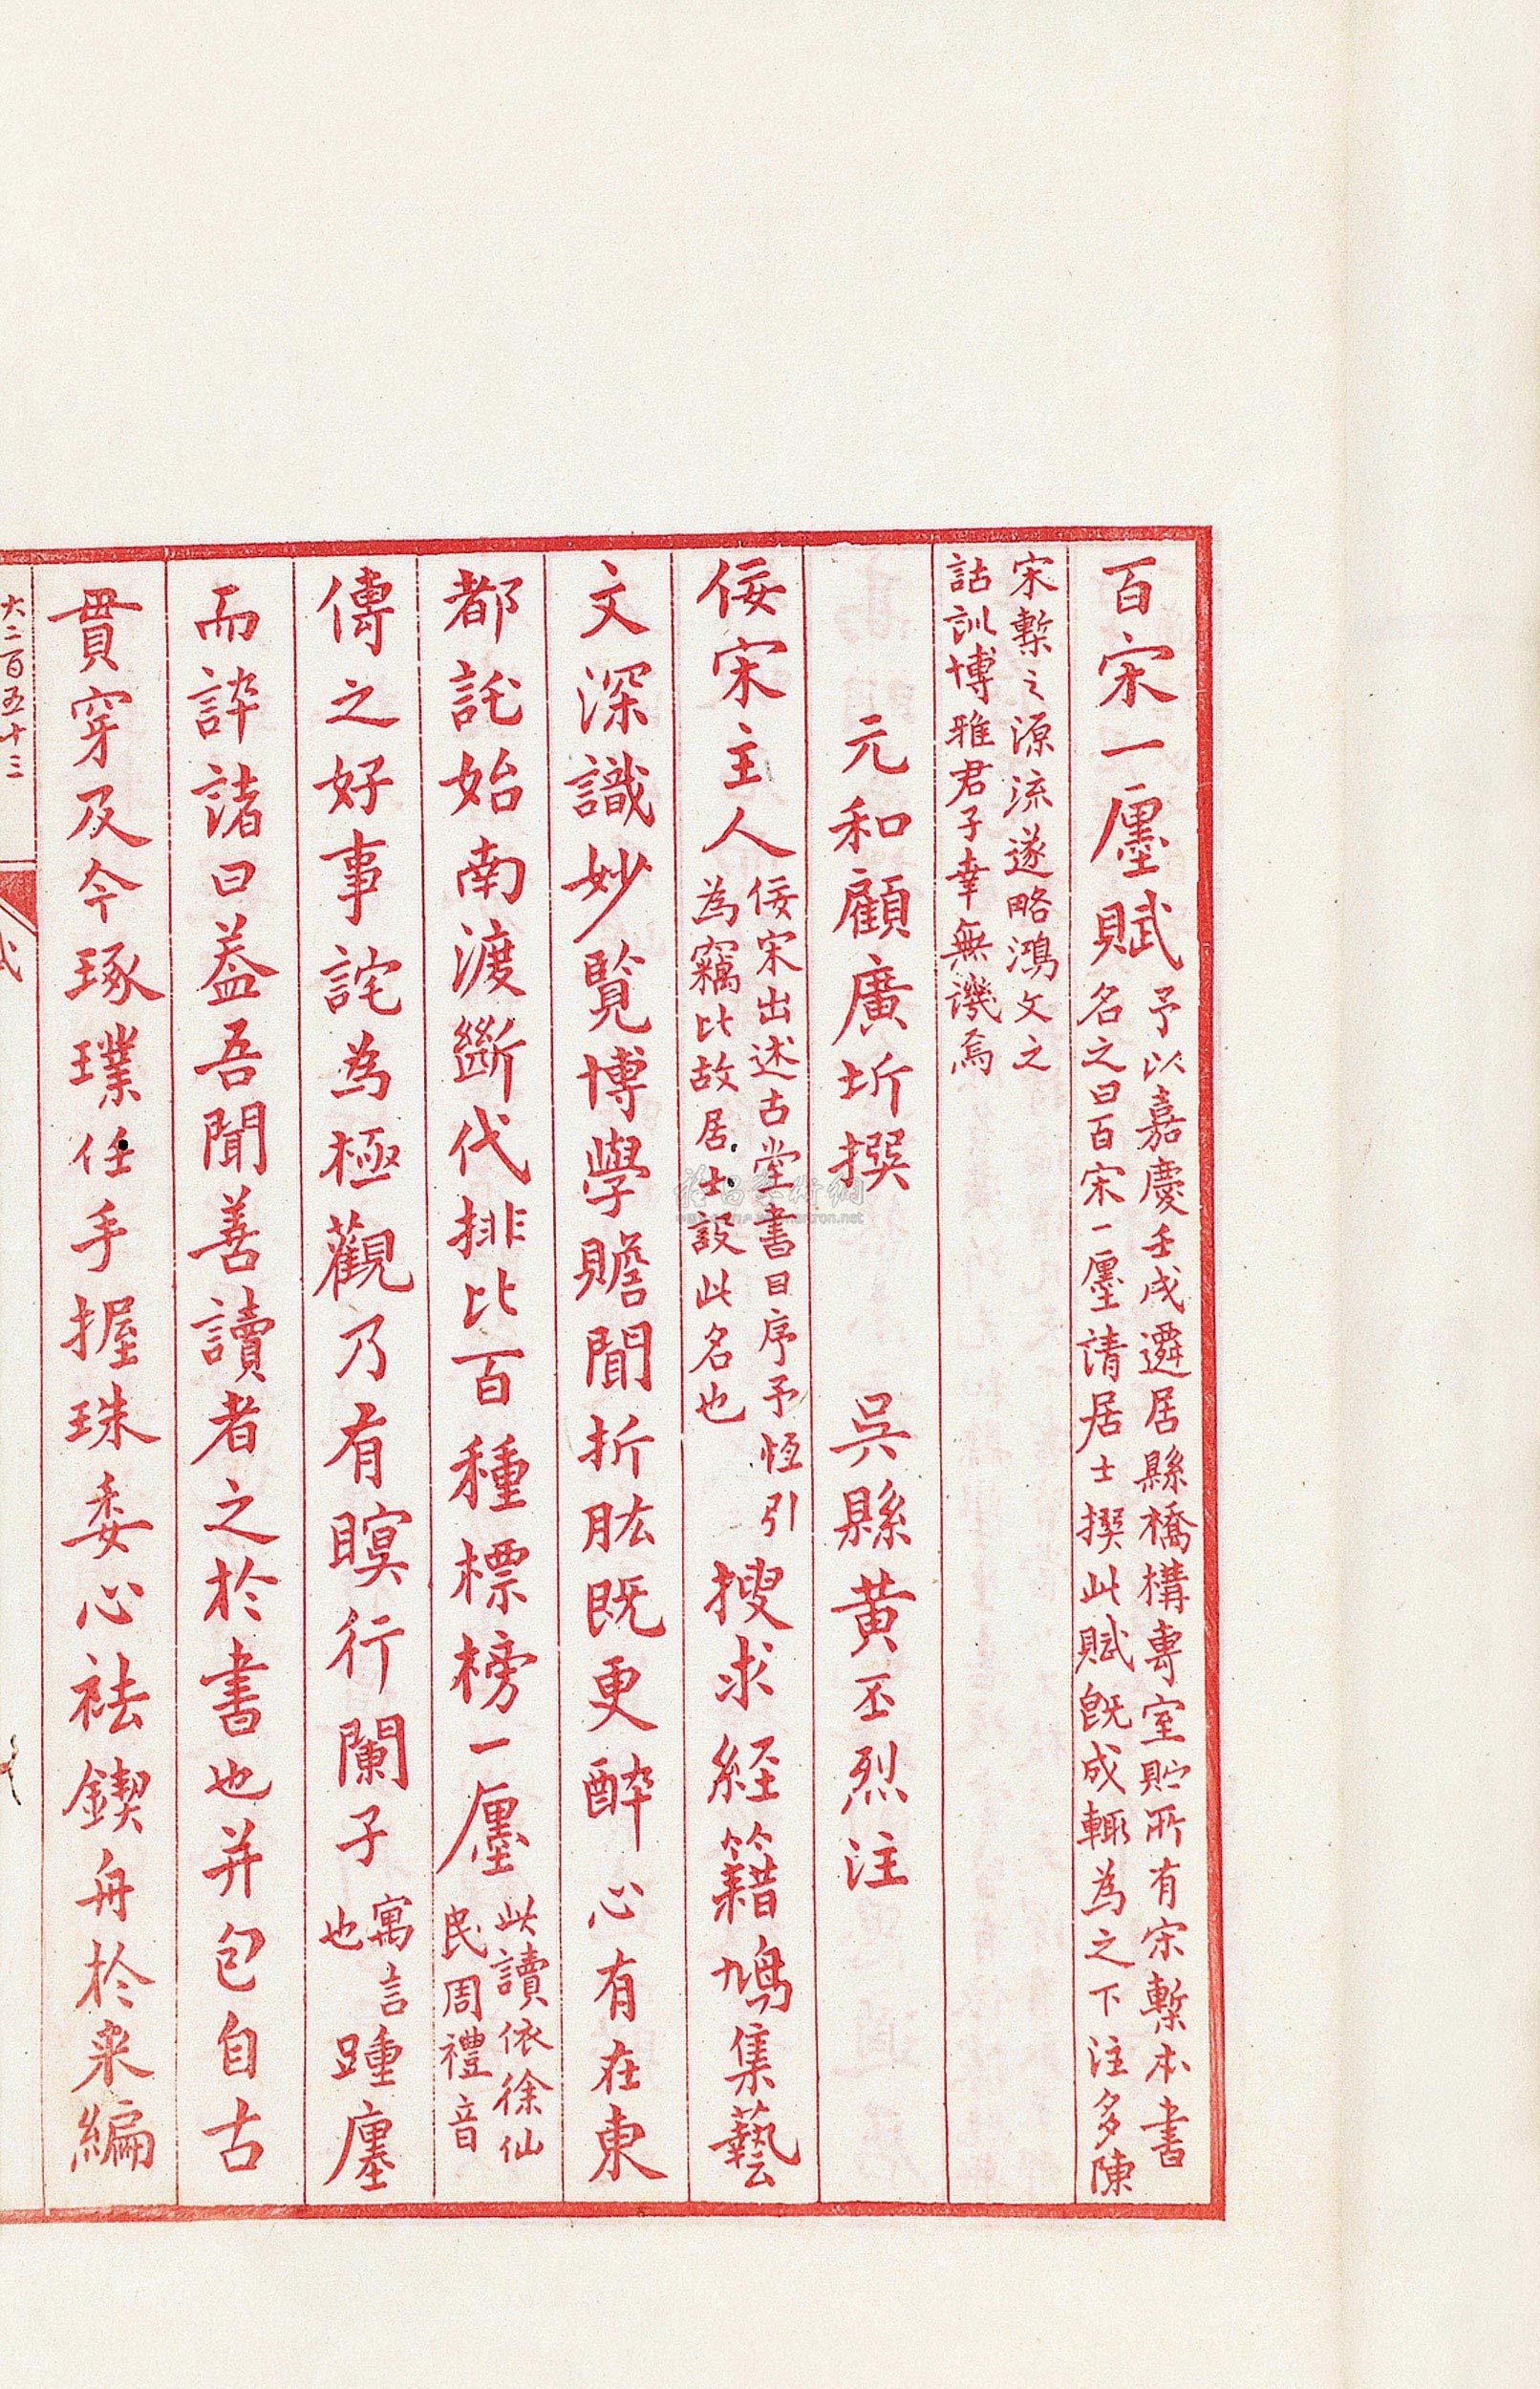 百宋一廛賦予以嘉慶壬戌遷居縣橋構專室貯所有宋槧本書
名之曰百宋一廛請居士撰此賦既成輒為之下注多陳
宋槧之源流遂略鴻文之
詁訓博雅君子幸無譏焉
元和顧廣圻撰 吳縣黄丕烈注
佞宋主人佞宋出述古堂書目序予恆引
為竊比故居士設此名也
搜求經籍鳩集藝
文深識妙覽博學贍聞折肱既更酔心有在東
都託始南渡斷代排比百種標榜一廛此讀依徐仙
民周禮音
傳之好事詫為極觀乃有瞑行闌子寓言
也
踵廛
而誶諸曰葢吾聞善讀者之於書也并包自古
貫穿及今琢璞任手握珠委心祛鍥舟於乘編
大二百五十三